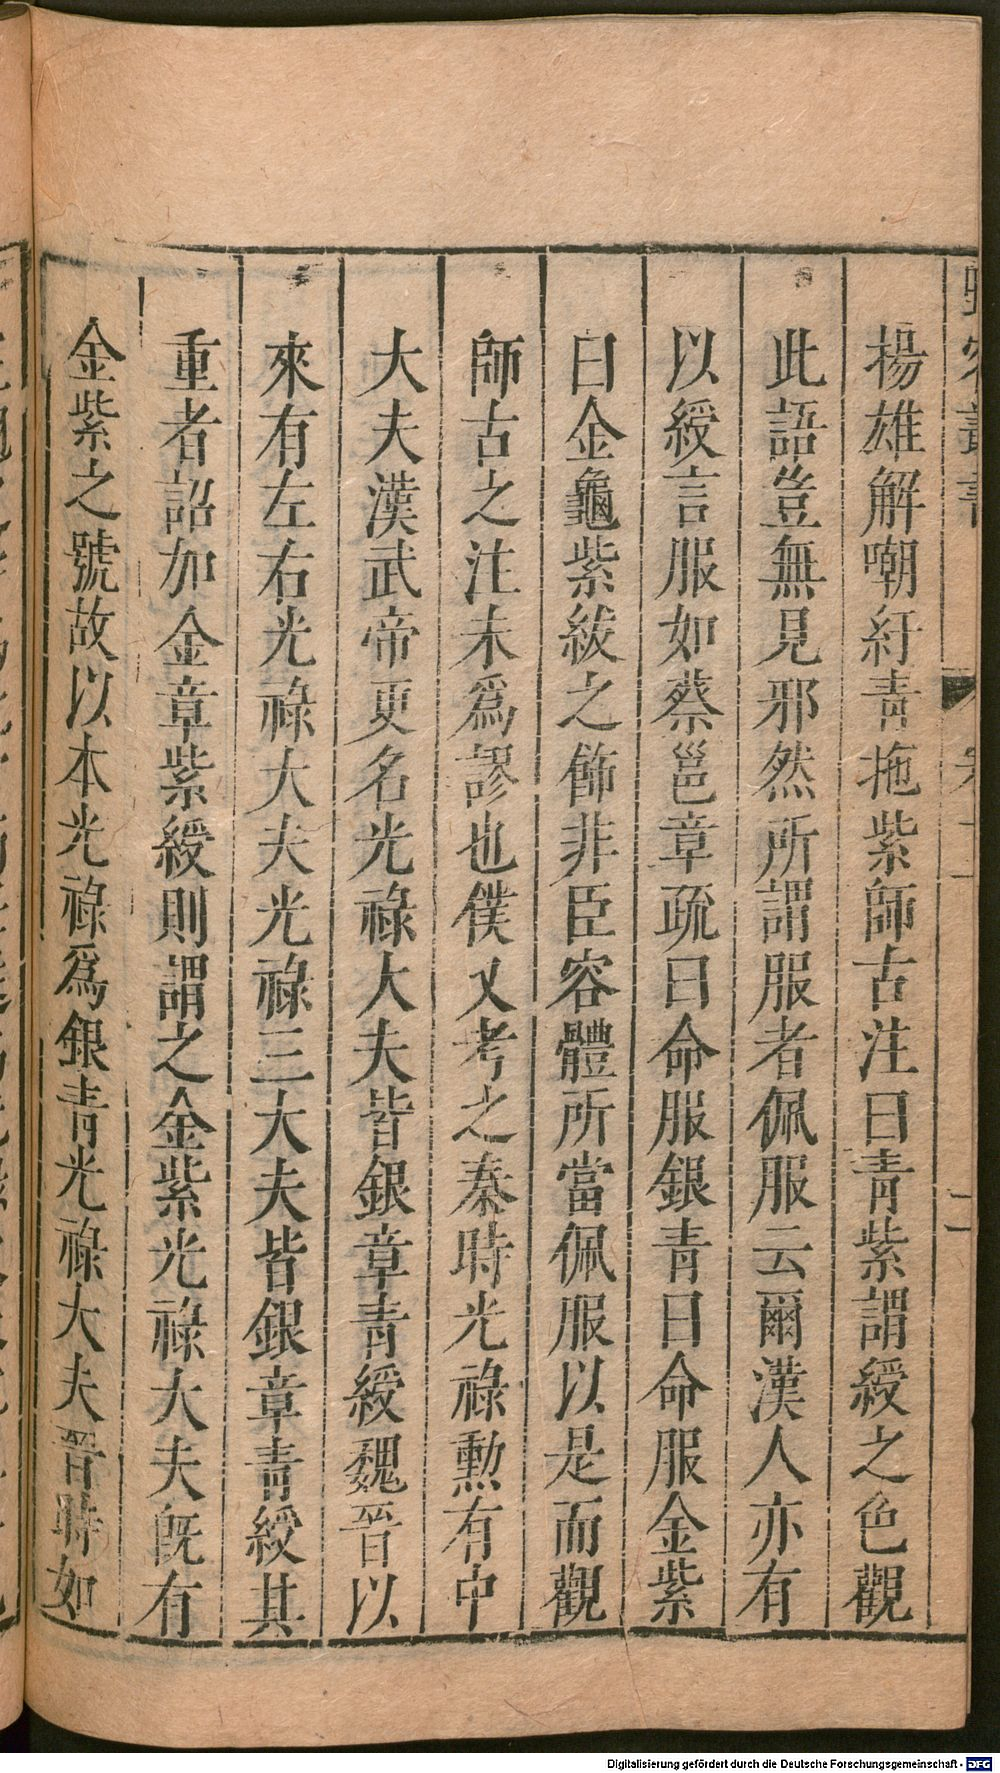 揚雄解嘲紆青拖紫師古注曰青紫謂綬之色觀
此語豈無見邪然所謂服者佩服云爾漢人亦有
以綬言服如蔡邕章疏曰命服銀青曰命服金紫
曰金龜紫紱之飾非臣容體所當佩服以是而觀
師古之注未爲謬也僕又考之秦時光祿勳有中
大夫漢武帝更名光祿大夫皆銀章青綬魏晉以
來有左右光祿大夫光祿三大夫皆銀章青綬其
重者詔加金章紫綬則謂之金紫光祿大夫旣有
金紫之號故以本光祿爲銀青光祿大夫晉時如
Digitalisierung gefördert durch die Deutsche Forschungsgemeinschaft - DFG